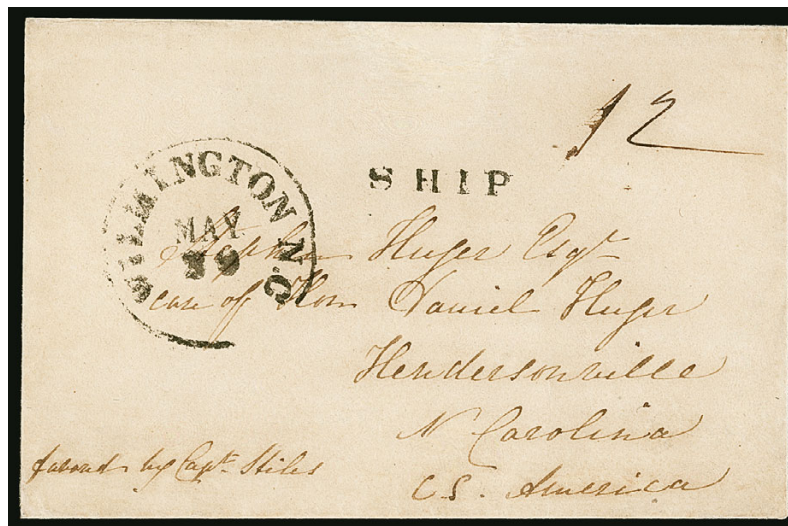 12
SHIP
WILMINGTON N.C.
MAY
Stephen Huger Esqr
care of Hon Daniel Huger
Hendersonville
N Carolina
C S. America
favored by Capt. Stiles